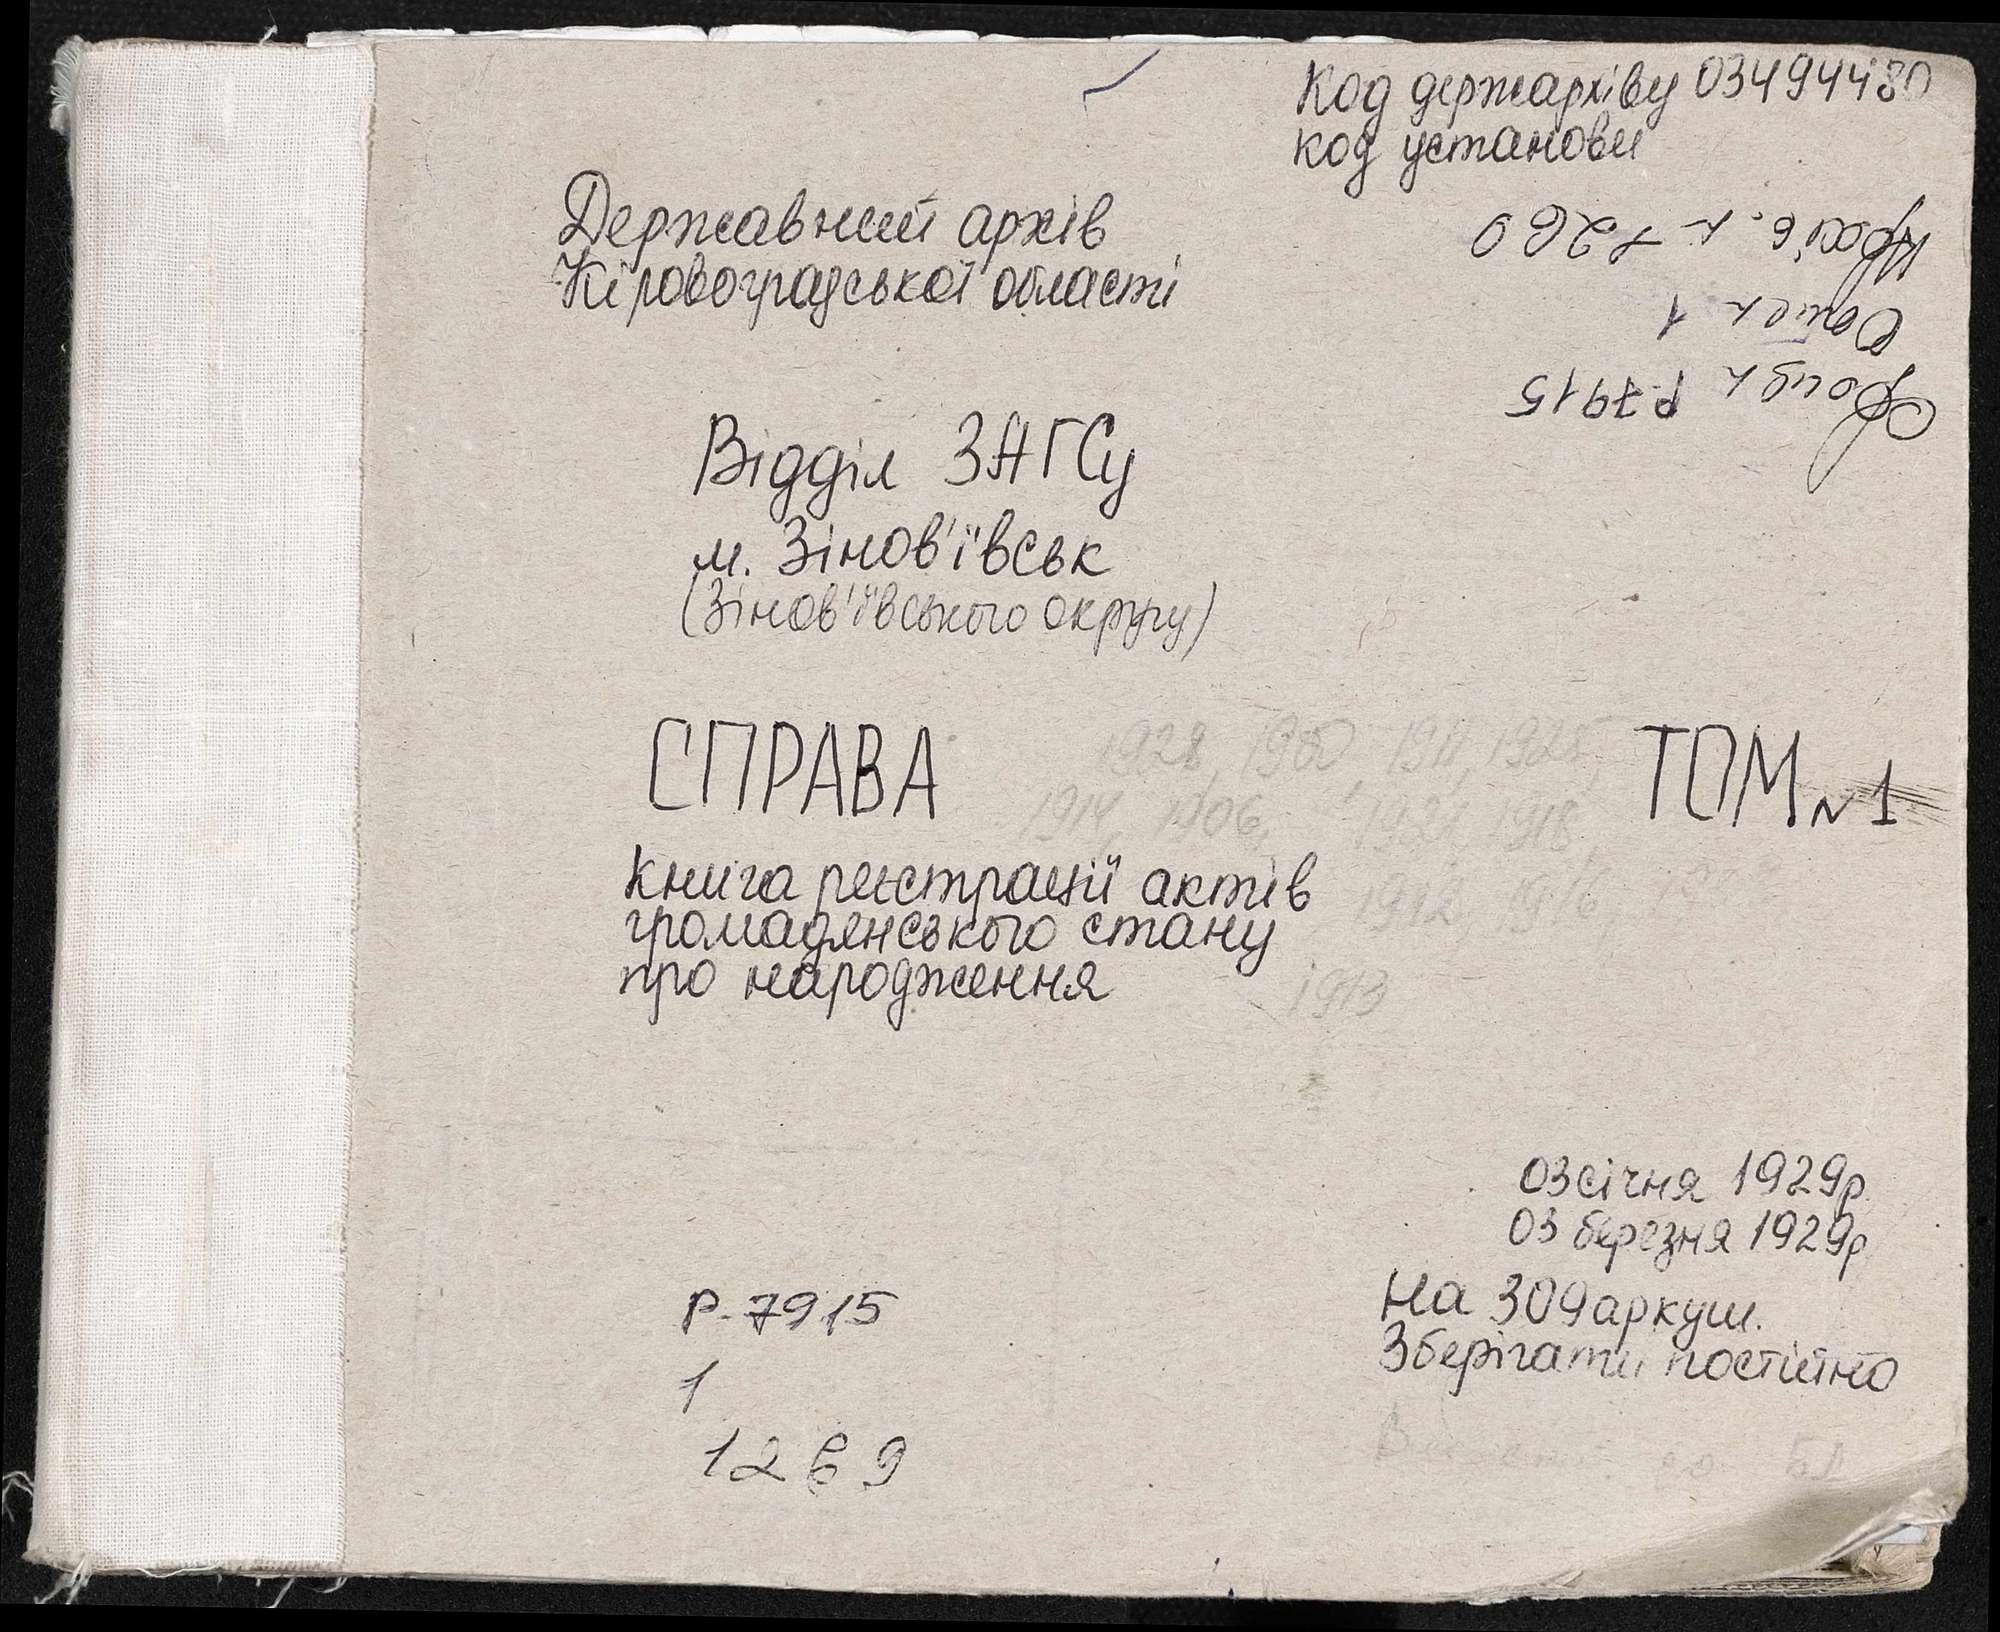 Код держархіву 03494480
код установи
Державний архів
Кіровоградської області
Фонд Р-7915
Опис 1
Відділ ЗАГСу
м. Зінов'ївськ
(Зінов'ївського округу)
СПРАВА ТОМ N 1
1928, 1930, 1911, 1925,
1914, 1906, 1921, 1918,
1912, 1916
1913
книга реєстрації актів
громадянського стану
про народження
03 січня 1929р
03 березня 1929р
На 309 аркуш.
Зберігати постійно
Р-7915
1
1269